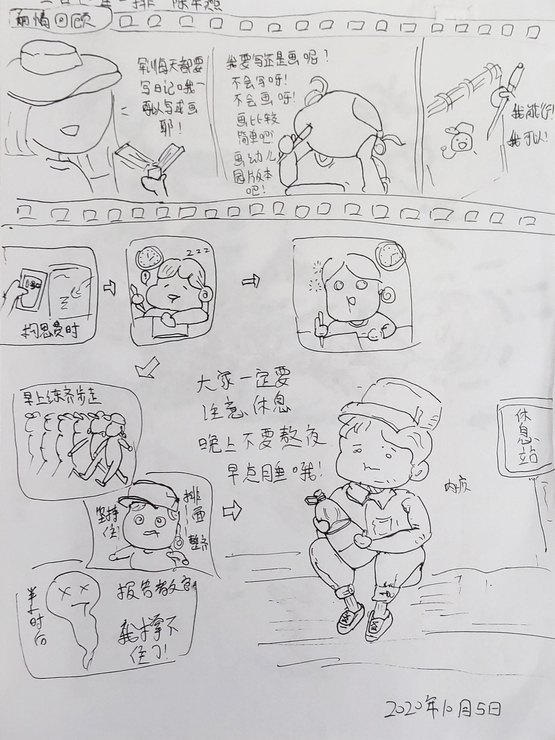 前情回顾
军训每天都要
写日记哦~
可以写或画
耶!
我要写还是画呢?
不会写呀!
不会画呀!
画比较
简单吧!
画幼儿
园版本
吧!
我能行!
我可以!
构思费时
zzz
早上练齐步走
大家一定要
注意休息
晚上不要熬夜
早点睡哦!
休息站
内疚
坚持住!
排面整齐
半小时后
报告教官
我撑不
住了!
2020年10月5日